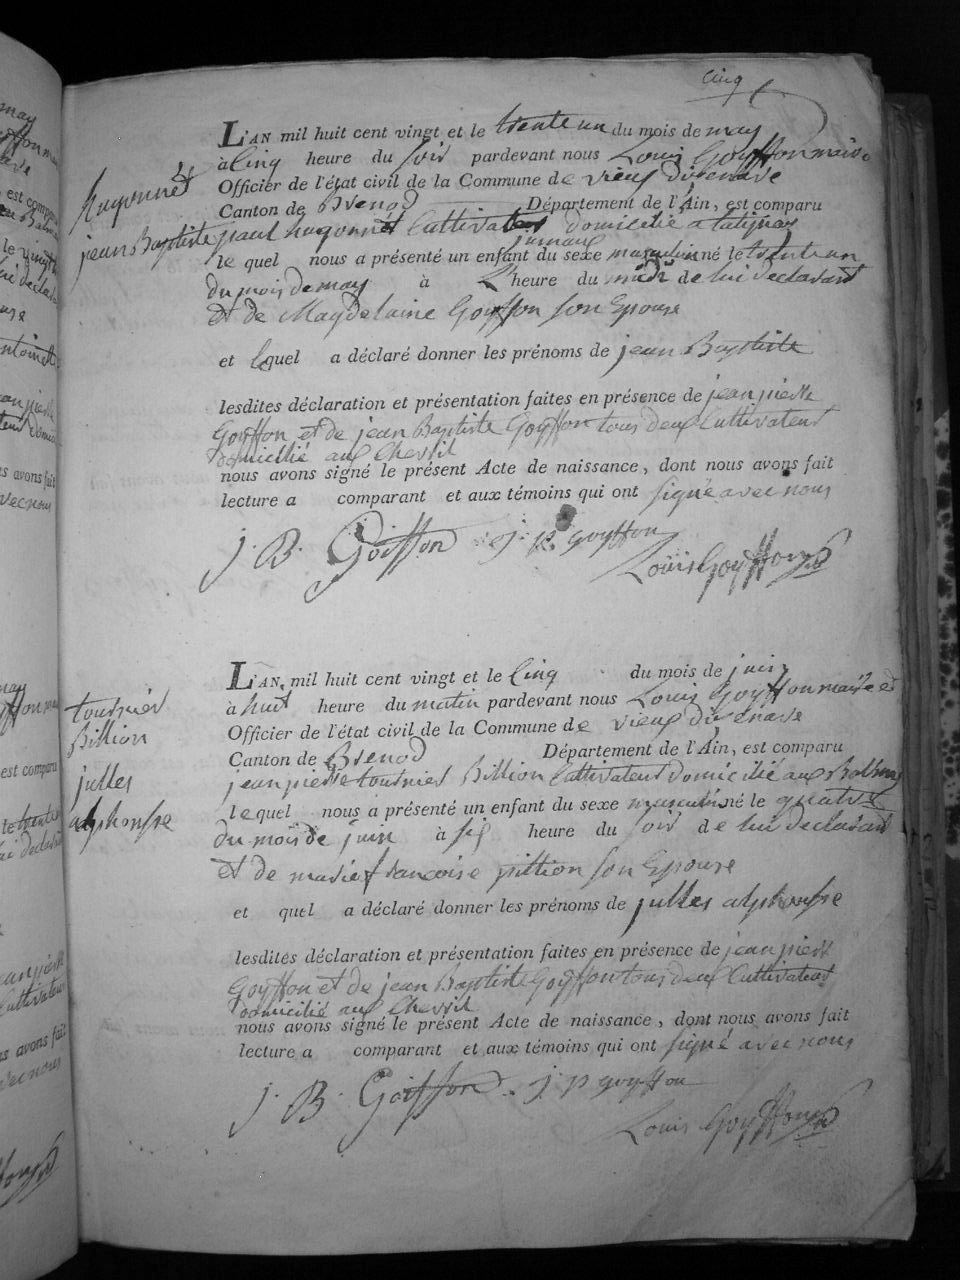 cinq
L'AN mil huit cent vingt et le trente un du mois de may
à Cinq heure du soir pardevant nous Louis Goyffon maire
Officier de l'état civil de la Commune de vieux disenave
Canton de Brenod Département de l'Ain, est comparu
hugonnet
jean Baptiste
paul hugonnet Cultivateur domicilié a tatignas
jumaux
le quel nous a présenté un enfant du sexe masculin né le trente un
du mois de may à L' heure du midi de lui declarant
et de Magdelaine Goyffon son Epouse
et lequel a déclaré donner les prénoms de jean Baptiste
lesdites déclaration et présentation faites en présence de jean pierre
Goyffon et de jean Baptiste Goyffon tous deux Cultivateur
domicillié aux Chevril
nous avons signé le présent Acte de naissance, dont nous avons fait
lecture a comparant et aux témoins qui ont signé avec nous
J. B. Goiffon J. p. goyffon
Louis Goyffon
L'AN mil huit cent vingt et le Cinq du mois de juin
à huit heure du matin pardevant nous Louis Goyffon maire et
Officier de l'état civil de la Commune de vieux disenave
Canton de Brenod Département de l'Ain, est comparu
tournier
Billion
julles
alphonse
jean pierre tournier Billion Cultivateur domicilié aux
le quel nous a présenté un enfant du sexe masculin né le quatre
du mois de juin à six heure du soir de lui declarant
et de marie francoise pittion son Epouse
et quel a déclaré donner les prénoms de julles alphonse
lesdites déclaration et présentation faites en présence de jean pierre
Goyffon et de jean Baptiste Goyffon tous deux Cultivateur
domicilié aux Chevril
nous avons signé le présent Acte de naissance, dont nous avons fait
lecture a comparant et aux témoins qui ont signé avec nous
J. B. Goiffon. j. p goyffon
Louis Goyffon